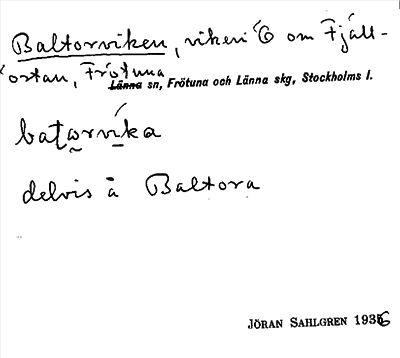 Baltorviken, viken i Ö om Fjäll-
ortan, Frötuna
Länna sn, Frötuna och Länna skg, Stockholms l.
baṭarvika
delvis å Baltora
JÖRAN SAHLGREN 1936